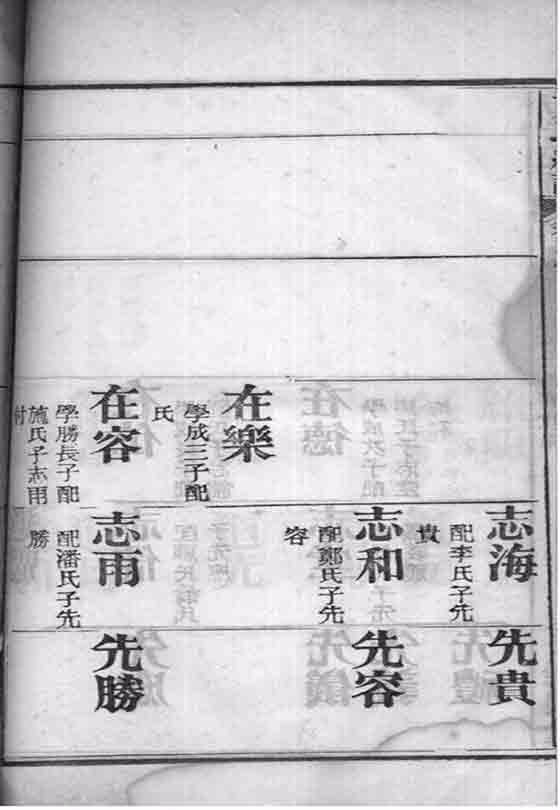 在樂
學成三子配
氏
在容
學勝長子配
施氏子志雨
附
志海
配李氏子先
貴
志和
配鄭氏子先
容
志雨
配潘氏子先
勝
先貴
先容
先勝